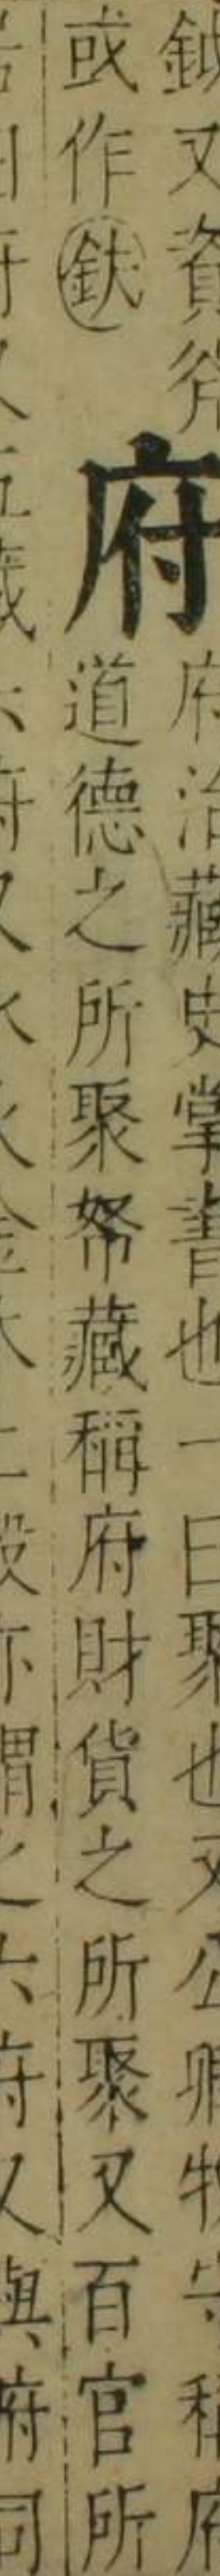 鉞又資斧
或作鈇
府
府治藏史掌書也一曰聚也又公卿牧守稱府
道德之所聚帑藏稱府財貨之所聚又百官所
居曰府又五藏六府又水火金木土穀亦謂之六府又與腑同